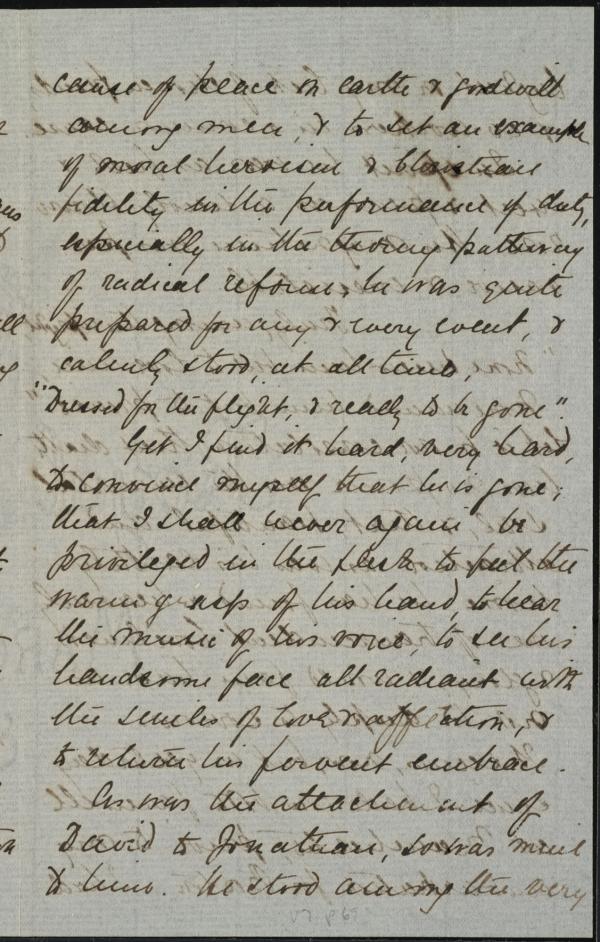 cause of peace on earth & goodwill
among men, & to set an example
of moral heroism & Christian
fidelity in the performance of duty,
especially in the thorny pathway
of radical reform, he was quite
prepared for any & every event, &
calmly stood, at all times,
"Dressed for the flight, & ready to be gone".
Yet I find it hard, very hard,
to convince myself that he is gone;
that I shall never again be
privileged in the flesh to feel the
warm grasp of his hand, to hear
the music of his voice, to see his
handsome face all radiant with
the smiles of love & affection, &
to return his fervent embrace.
As was the attachment of
David to Jonathan, so was mine
to him. He stood among the very
v7 p65